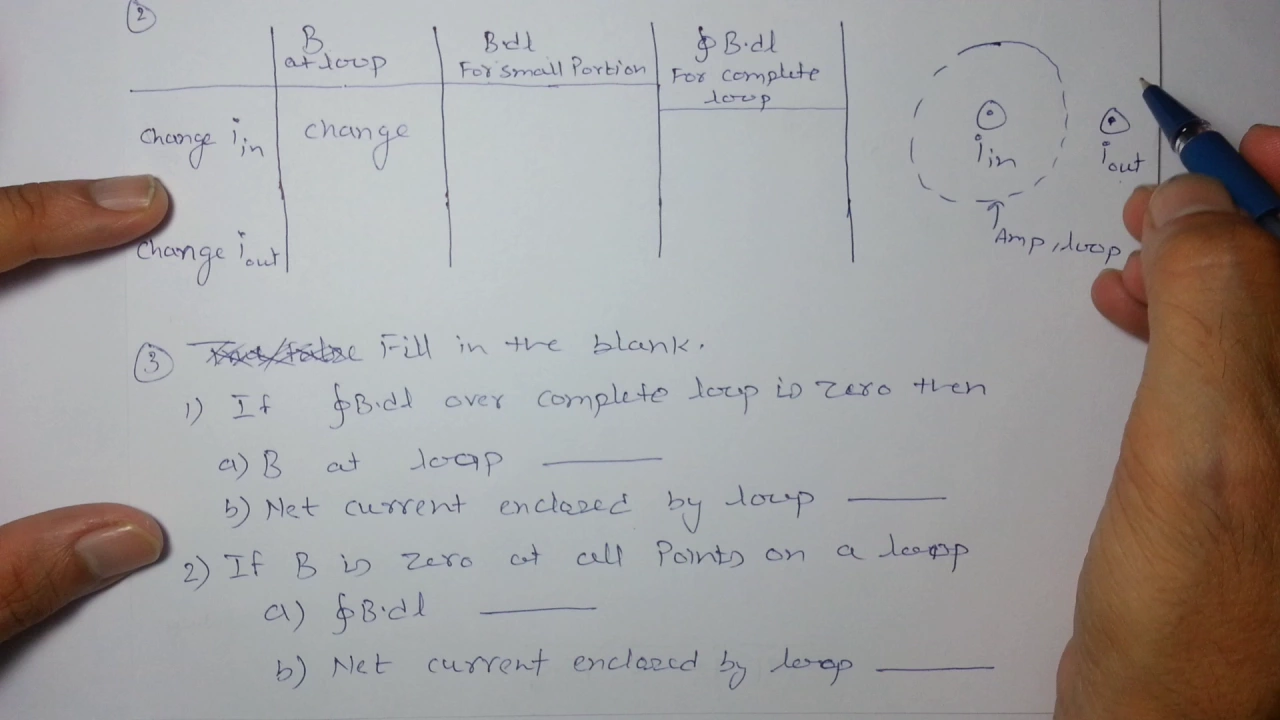 ②
B at loop
B.dl For small Portion
∮B.dl For complete loop
Change i in
change
Change i out
i in
i out
Amp, loop
③ Fill in the blank.
1) If ∮B.dl over complete loop is zero then
a) B at loop ____
b) Net current enclosed by loop ____
2) If B is zero at all Points on a loop
a) ∮B.dl ____
b) Net current enclosed by loop ____